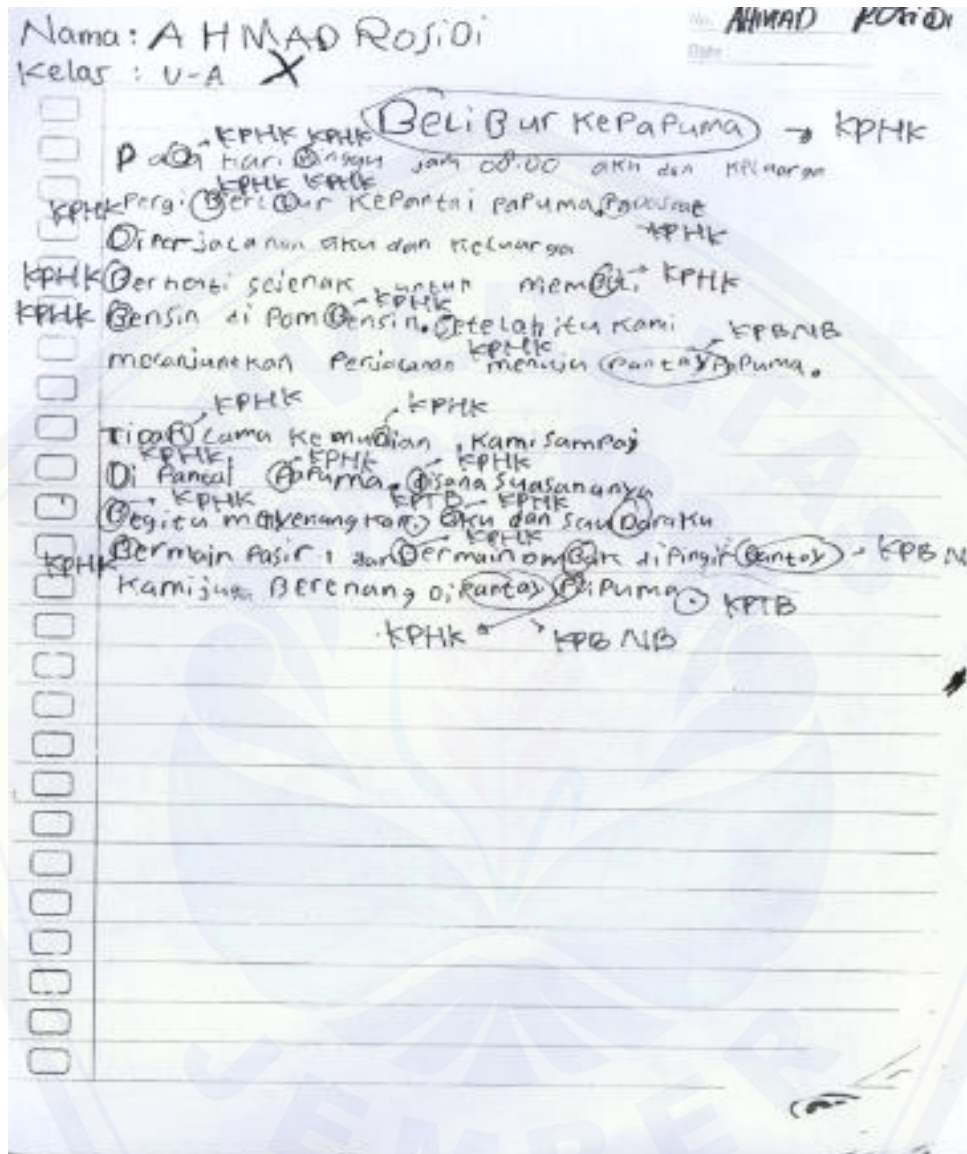 No. AHMAD ROSiDi
Date:
Nama: AHMAD ROSiDi
Kelas : V-A X
BeLiBur KePaPuma → KPHK
KPHK KPHK
PaDa Hari Minggu jam 08.00 aku dan Keluarga
KPHK KPHK
KPHK Pergi BerliBur KePantai PaPuma.
KPHK
DiPerjalanan aku dan Keluarga
KPHK Berhenti sejenak untuk memBeli KPHK
KPHK
KPHK Bensin di Pom Bensin. Setelah itu Kami KPBNB
KPHK
melanjutkan Perjalanan menuju Pantay PaPuma.
KPHK KPHK
TiDaK Lama KemuDian, Kami Sampay
KPHK KPHK KPHK
Di Pantai PaPuma. disana Suasananya
KPHK KPTB KPHK
Begitu menyenangkan, aKu dan SauDaraKu
KPHK
KPHK Bermain Pasir, dan Bermain omBak diPingir Pantay KPBNB
Kami juga Berenang Di Pantay PaPuma. KPTB
KPHK KPBNB
UNIVERSITAS
JEMBER